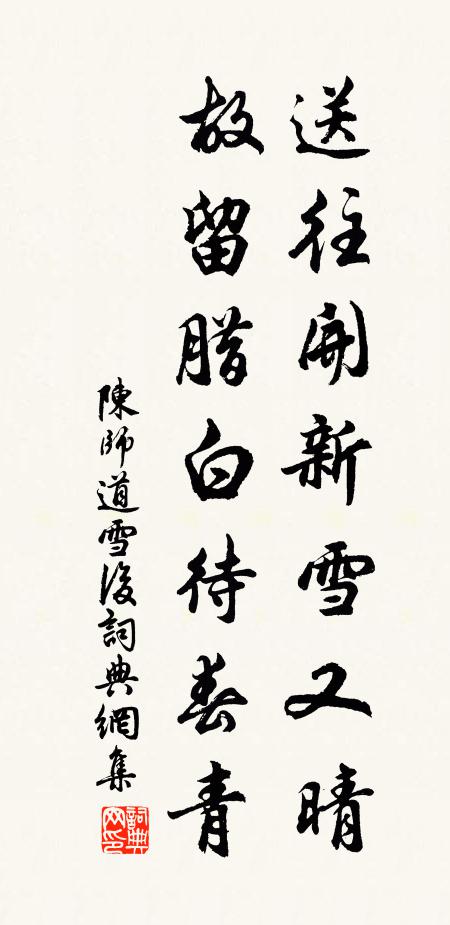 送往開新雪又晴
故留腊白待春青
陳師道雪後詞典網集
詞典
网印